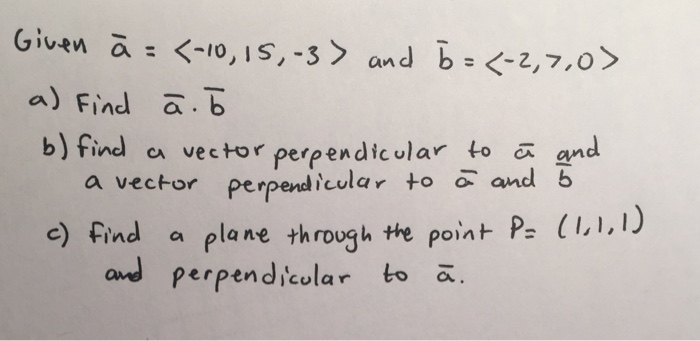 Given ā = <-10, 15, -3> and b̄ = <-2, 7, 0>
a) Find ā . b̄
b) find a vector perpendicular to ā and
a vector perpendicular to ā and b̄
c) find a plane through the point P= (1, 1, 1)
and perpendicular to ā.